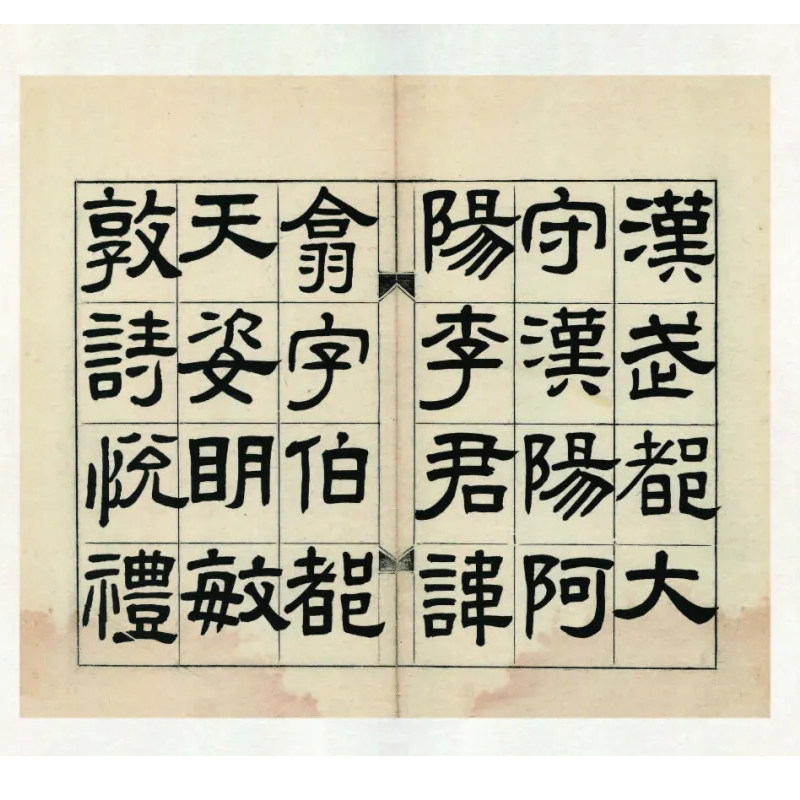 漢武都大
守漢陽阿
陽李君諱
翕字伯都
天姿眀敏
敦詩悅禮